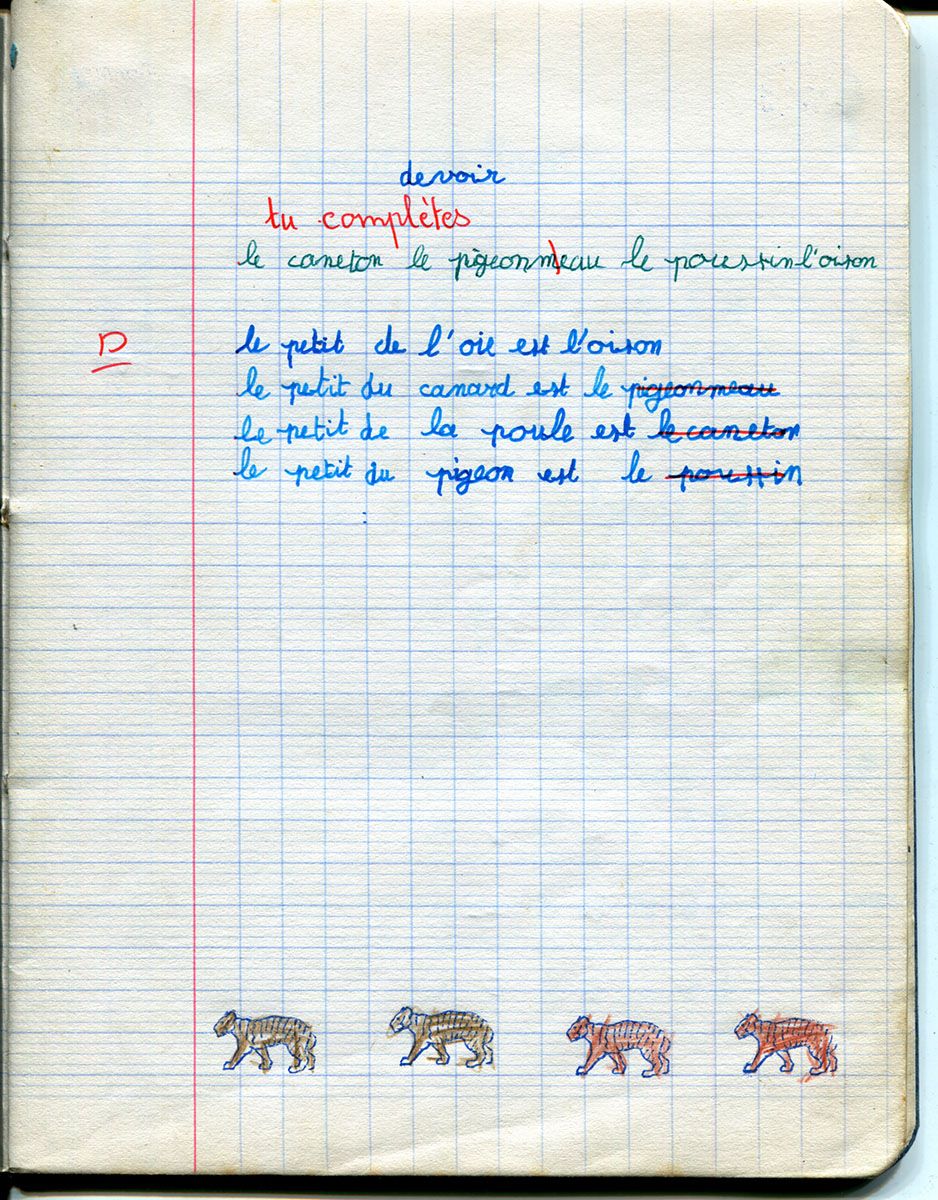 devoir
tu complètes
le caneton le pigeonmeau le poussin l'oison
D
le petit de l'oie est l'oison
le petit du canard est le pigeonmeau
le petit de la poule est le caneton
le petit du pigeon est le poussin